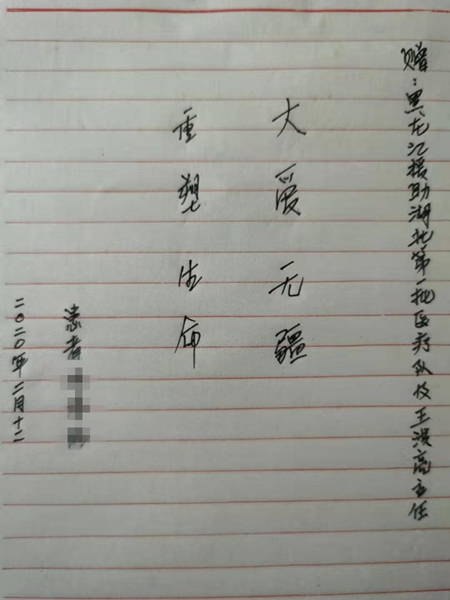 赠：黑龙江援助湖北第一批医疗队及王洪亮主任
大爱无疆
重塑生命
患者
二0二0年二月十二